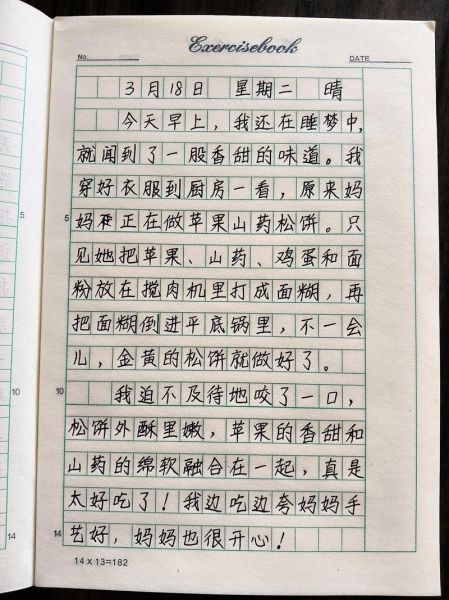 Exercisebook
No. DATE
3月18日 星期二 晴
今天早上，我还在睡梦中，
就闻到了一股香甜的味道。我
穿好衣服到厨房一看，原来妈
5 妈正在做苹果山药松饼。只
见她把苹果、山药、鸡蛋和面
粉放在搅肉机里打成面糊，再
把面糊倒进平底锅里，不一会
儿，金黄的松饼就做好了。
10 我迫不及待地咬了一口，
松饼外酥里嫩，苹果的香甜和
山药的绵软融合在一起，真是
太好吃了！我边吃边夸妈妈手
14 艺好，妈妈也很开心！
14×13=182
5
10
14